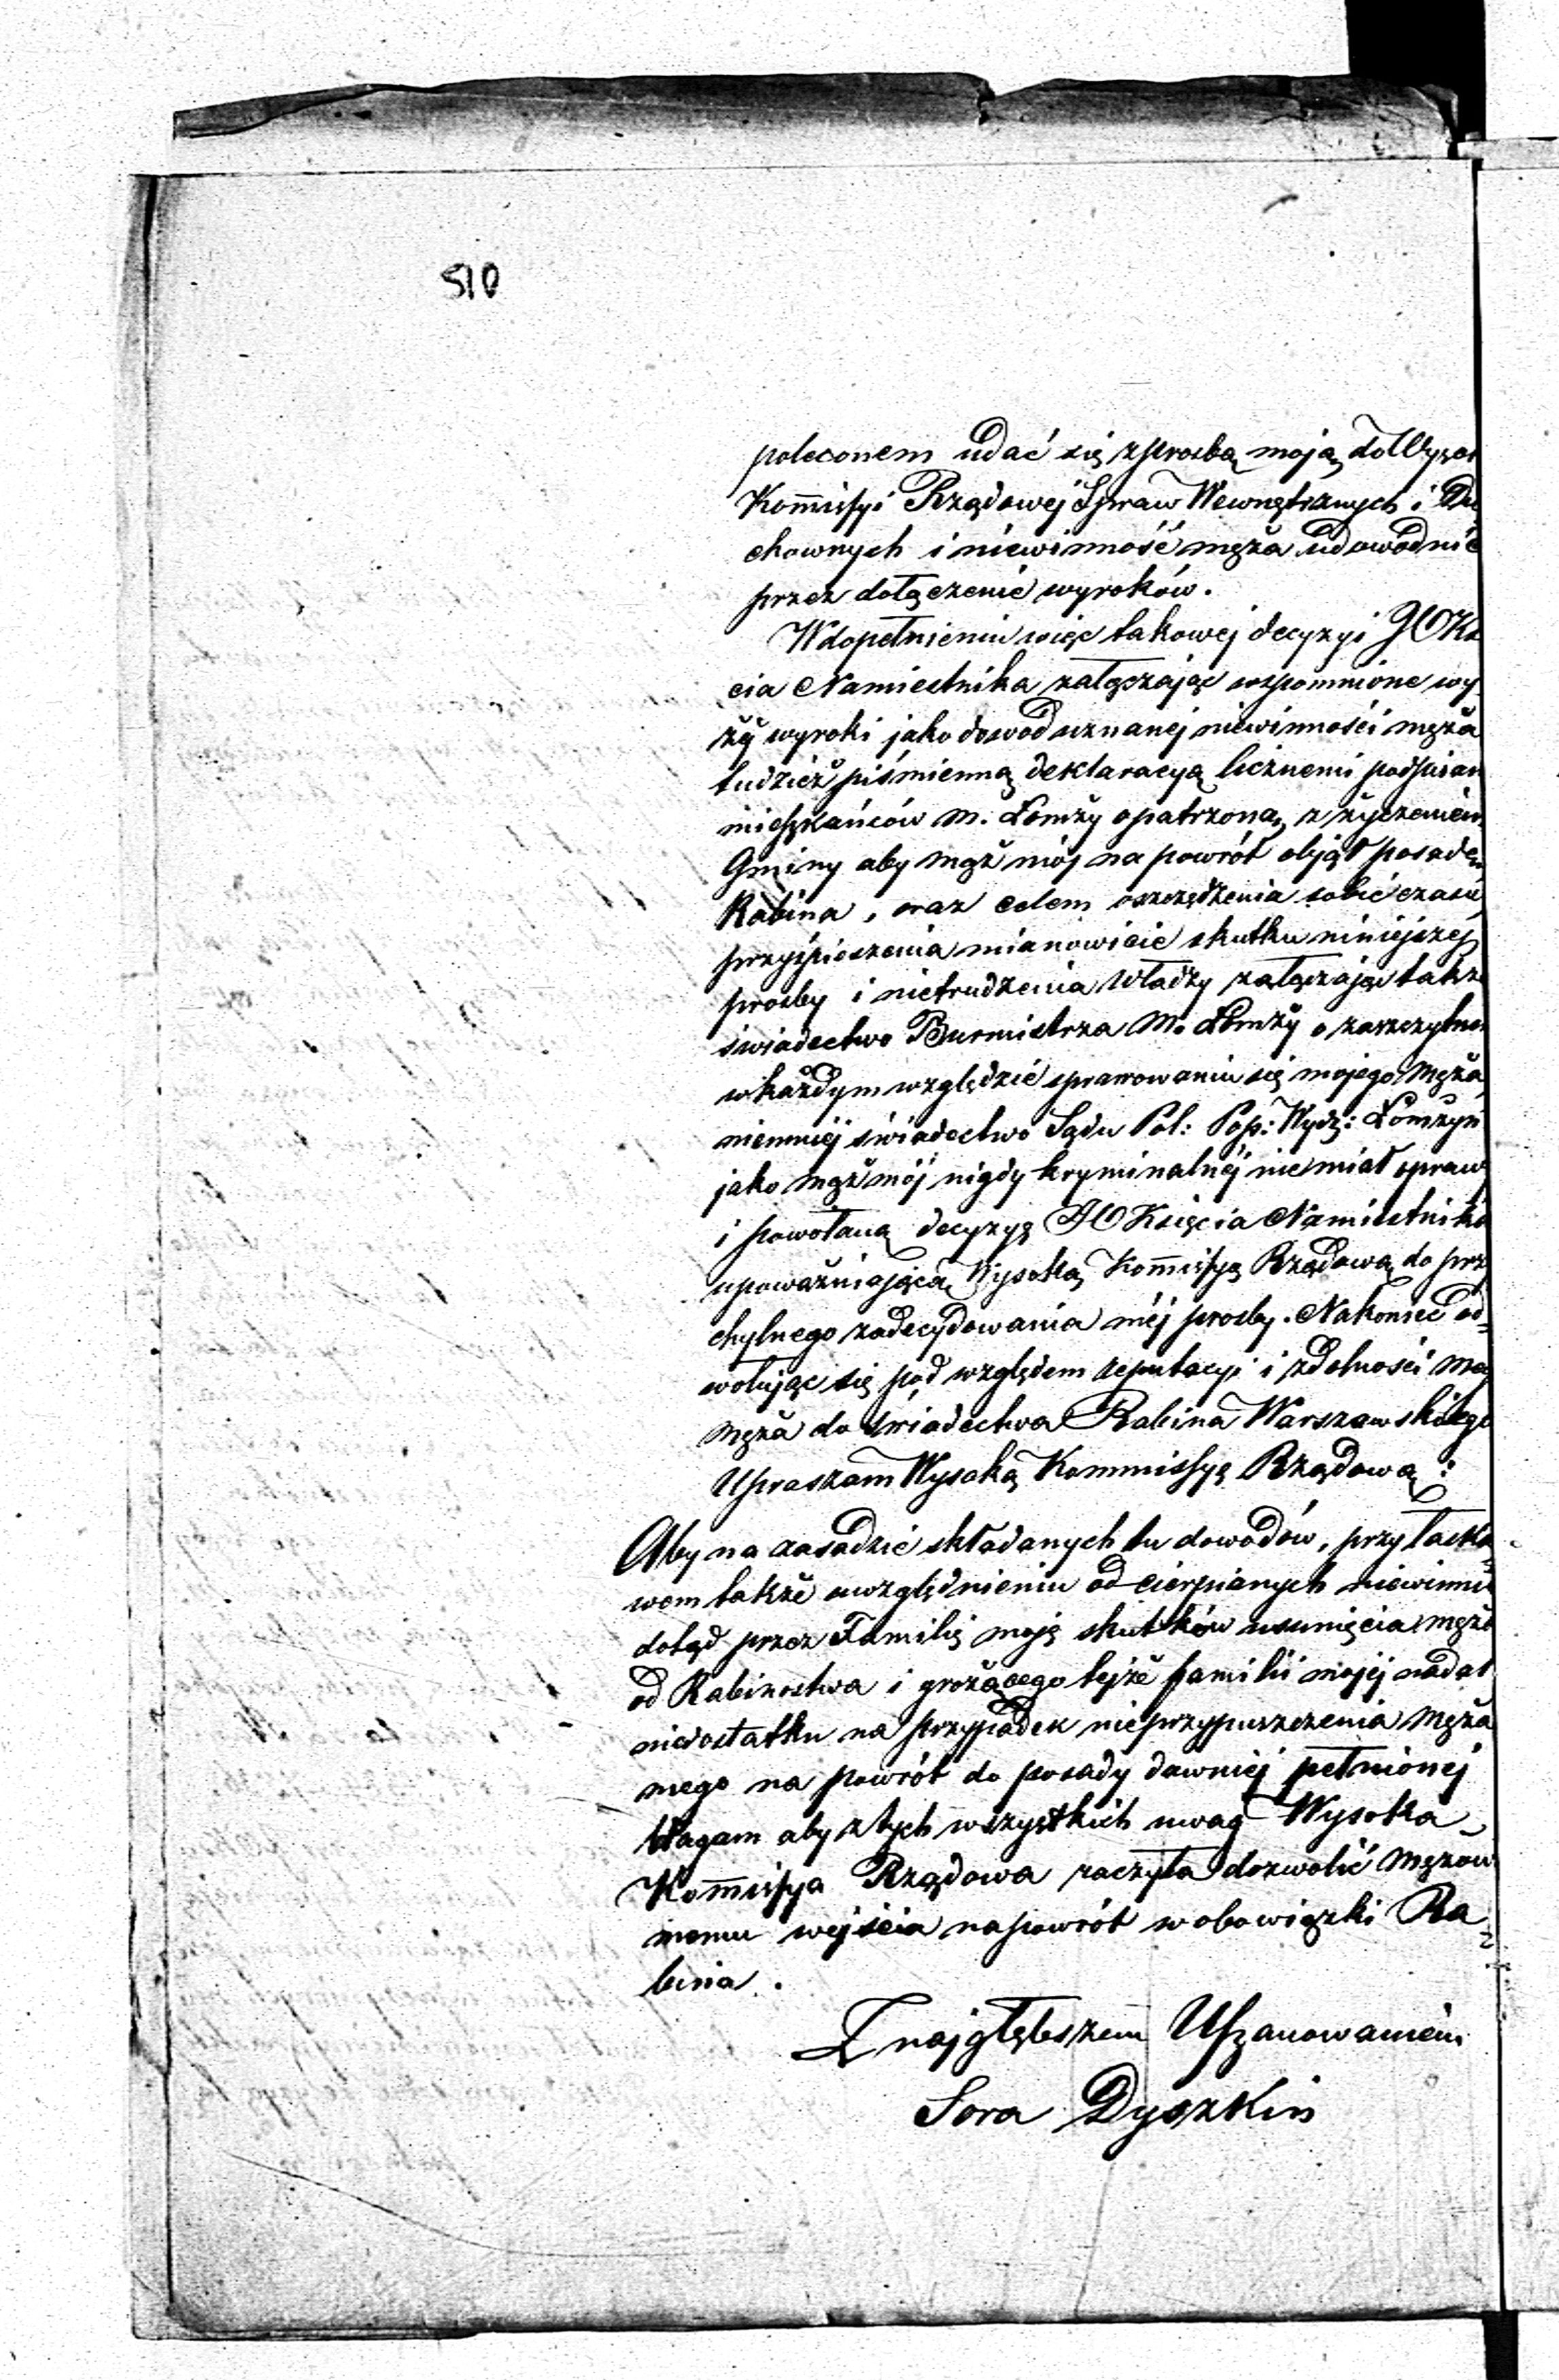 510
poleconem udać się z prosbą moją do Wysok
Kommissyi Rządowéj Spraw Wewnętrznych i Du
chownych i niewinność męża udowodnić
przez dołączenie wyroków.
W dopełnieniu więc takowéj decyzyi JO Ks
cia Namiestnika załączając wspomnione wy
żéj wyroki jako dowód uznanéj niewinności męża
tudzież piśmienną deklaracyą licznemi podpisam
mieszkańców M. Łomży opatrzoną, z życzeniem
Gminy aby mąż mój na powrót objął posadę
Rabina, oraz celem oszczędzenia sobie czasu,
przyśpieszenia mianowicie skutku niniejszéj
prosby i nietrudzenia Władzy załączając także
świadectwo Burmistrza M. Łomży o zaszczytnem
w każdym względzie sprawowaniu się mojego męża,
niemniéj świadectwo Sądu Pol: Pop: Wydz: Łomżyń
jako mąż mój nigdy kryminalnéj nie miał sprawy
i powołaną decyzyę JO Księcia Namiestnika
upoważniającą Wysoką Kommissyę Rządową do przy
chylnego zadecydowania méj prosby. Nakoniec od=
wołując się pod względem reputacyi i zdolności me
męża do świadectwa Rabina Warszawskiego
Upraszam Wysoką Kommissyę Rządową:
Aby na zasadzie składanych tu dowodów, przy łaska=
wem także uwzględnieniu od cierpianych niewinnie
dotąd przez Familię moję skutków usunięcia męża
od Rabinostwa i grożącego tejże familii mojéj nadal
niedostatku na przypadek nieprzypuszczenia męża
mego na powrót do posady dawniéj pełnionéj
błagam aby z tych wszystkich uwag Wysoka
Kommissya Rządowa raczyła dozwolić mężow
memu wejścia napowrót w obowiązki Ra=
bina.
Z najgłębszem Uszanowaniem
Sora Dyszkin